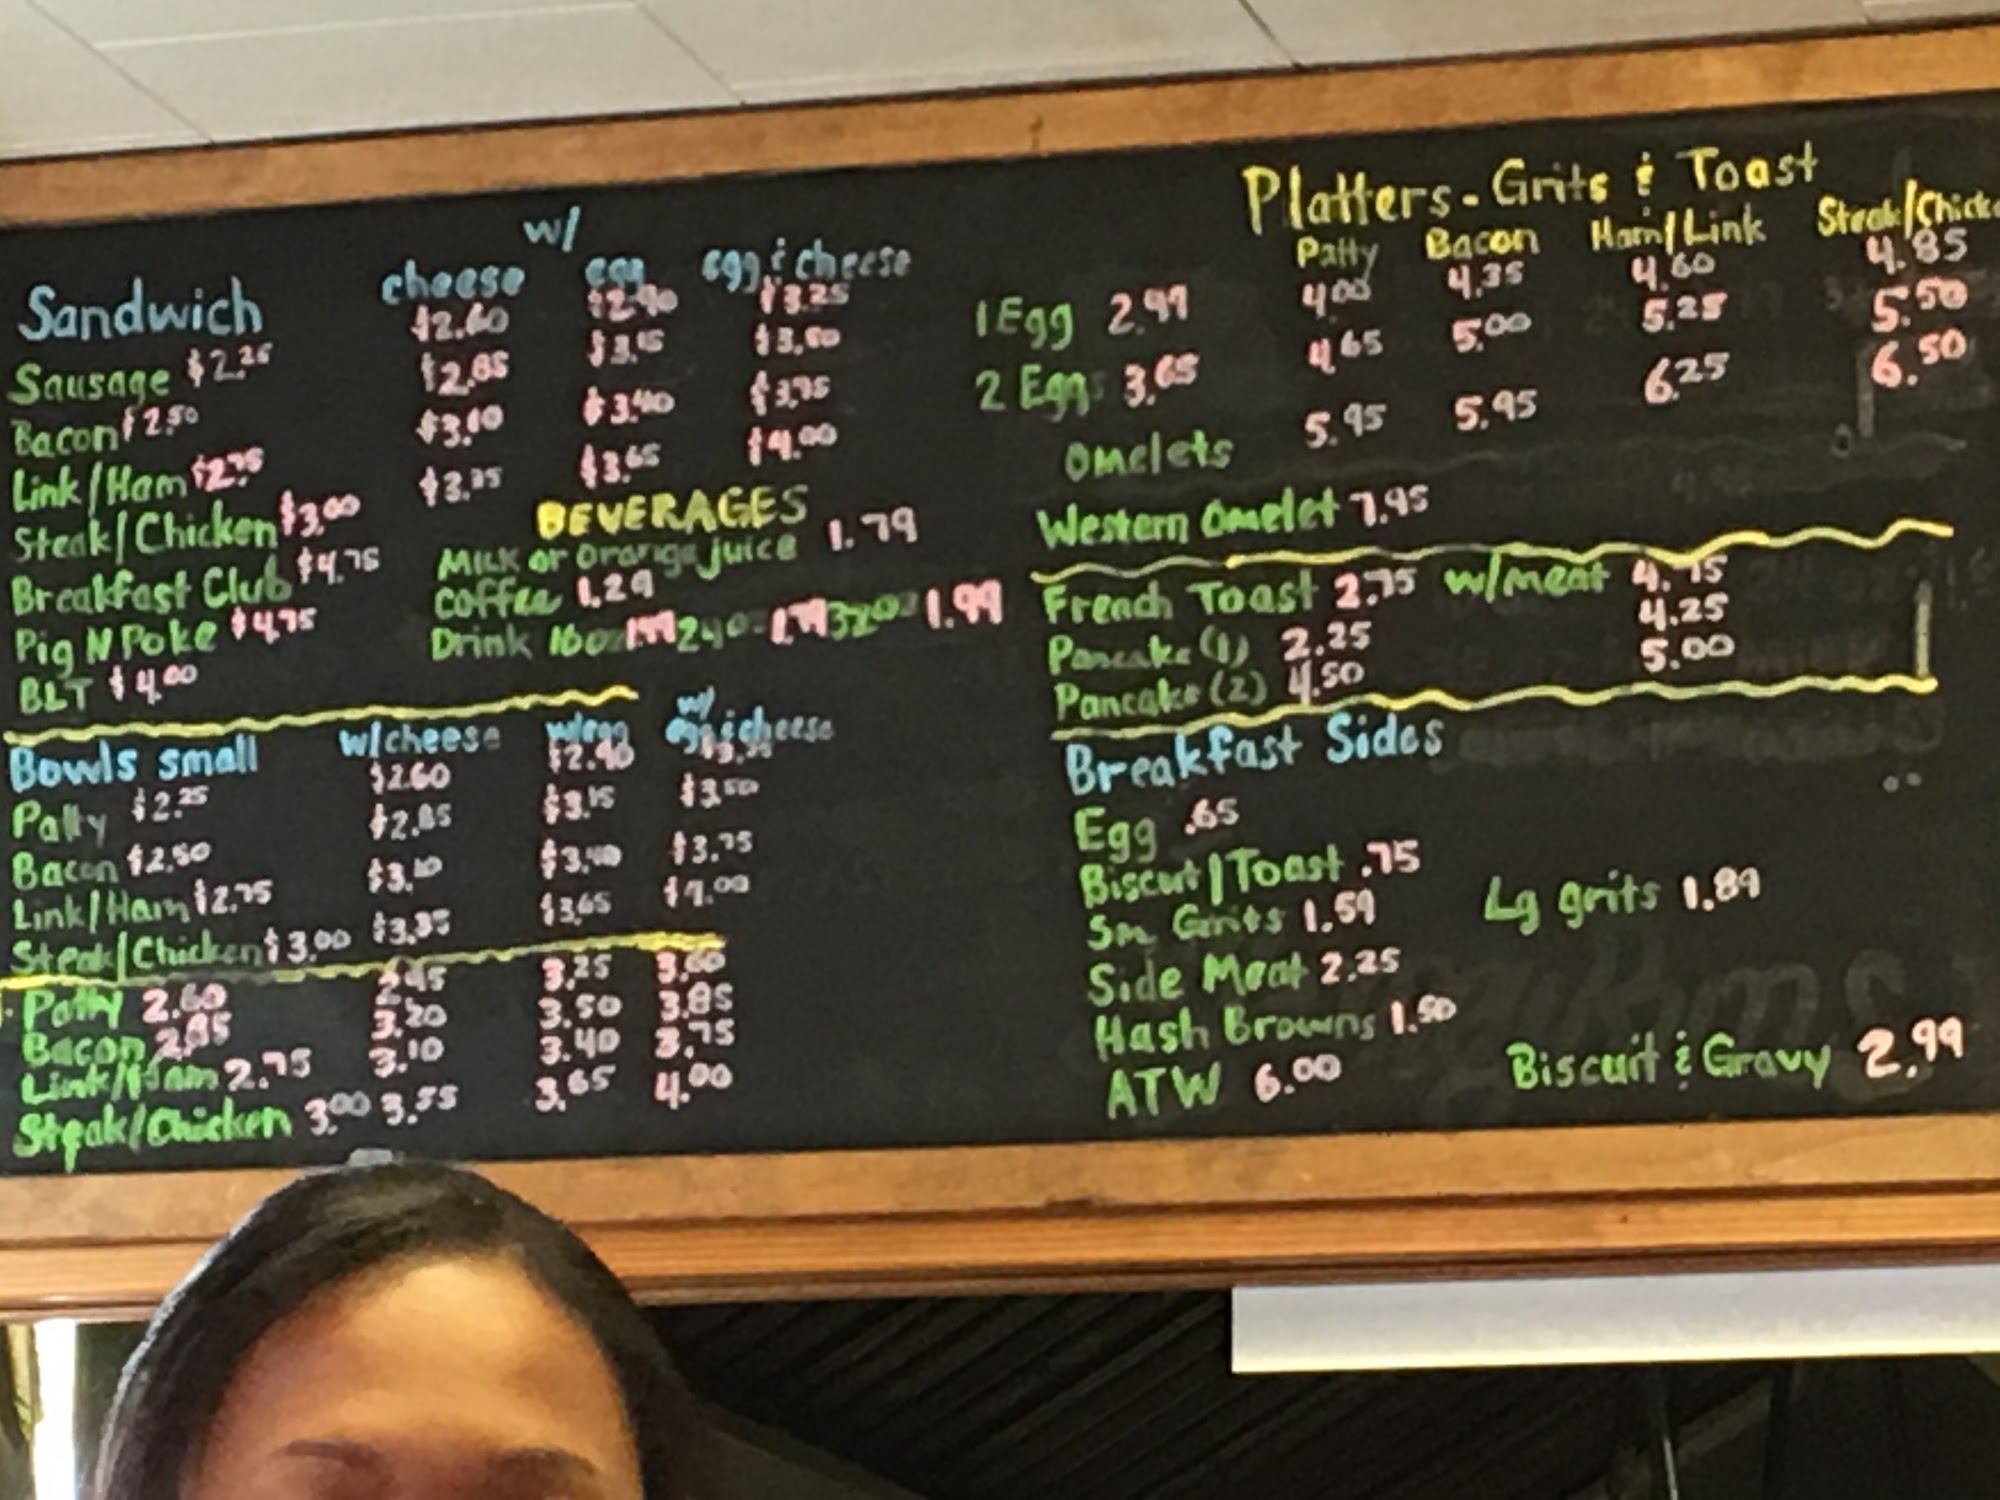 w/
Sandwich cheese egg egg & cheese
Sausage $2.25 $2.60 $2.90 $3.25
Bacon $2.50 $2.85 $3.15 $3.50
Link/Ham $2.75 $3.10 $3.40 $3.75
Steak/Chicken $3.00 $3.35 $3.65 $4.00
Breakfast Club $4.75
Pig N Poke $4.75
BLT $4.00
BEVERAGES
Milk or orange juice 1.79
Coffee 1.29
Drink 16oz 24oz 32oz 1.99
Bowls small w/cheese w/egg w/ egg & cheese
Patty $2.25 $2.60 $2.90
Bacon $2.50 $2.85 $3.15 $3.50
Link/Ham $2.75 $3.10 $3.40 $3.75
Steak/Chicken $3.00 $3.35 $3.65 $4.00
Patty 2.60 2.95 3.25 3.60
Bacon 2.85 3.20 3.50 3.85
Link/Ham 2.75 3.10 3.40 3.75
Steak/Chicken 3.00 3.35 3.65 4.00
Platters - Grits & Toast
Patty Bacon Ham/Link Steak/Chick
1 Egg 2.99 4.00 4.35 4.60 4.85
2 Eggs 3.65 4.65 5.00 5.25 5.50
Omelets 5.95 5.95 6.25 6.50
Western Omelet 7.95
French Toast 2.75 w/meat 4.75
Pancake (1) 2.25 4.25
Pancake (2) 4.50 5.00
Breakfast Sides
Egg .65
Biscuit/Toast .75
Sm Grits 1.59 Lg grits 1.89
Side Meat 2.25
Hash Browns 1.50
ATW 6.00 Biscuit & Gravy 2.99